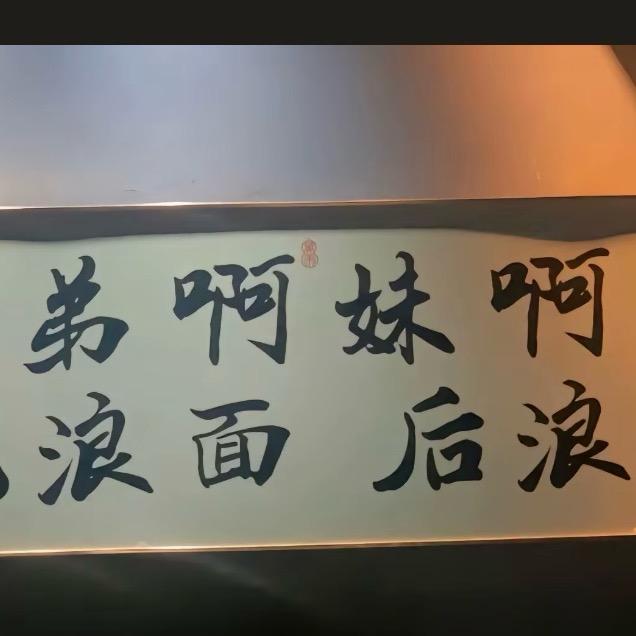 弟啊妹啊
浪面后浪